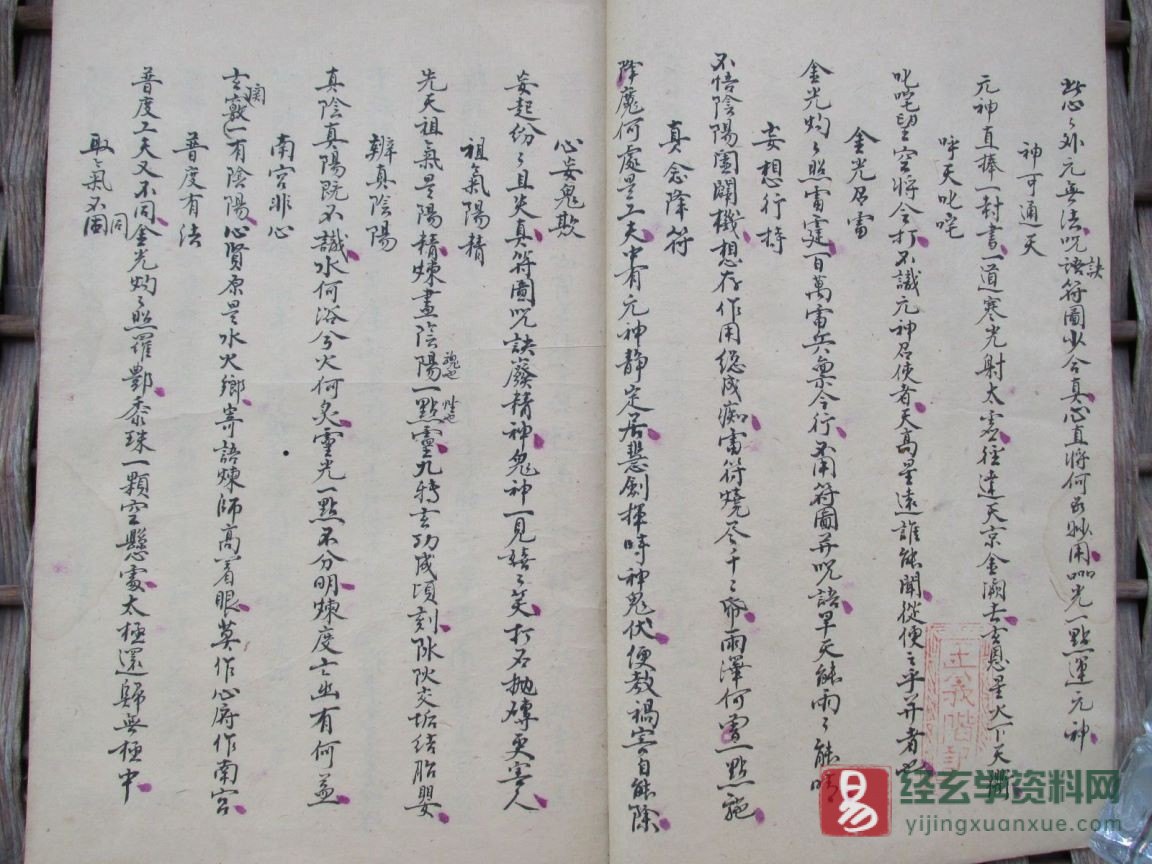 此心之外元無法咒訣語符圖水合真心直將何為妙用一光一點運元神
神可通天
元神直捧一封書一道寒光射太虛徑達天京金闕去玄恩星火下天
呼天叱咤
叱咤望空將令打不識元神召使者天高星遠誰能聞從使之乎并者也
金光召雷
金光灼々照雷霆百萬雷兵稟令行不用符圖并咒語旱天能雨々能晴
妄想行持
不悟陰陽闔闢機想存作用總成痴雷符燒尽千々帋雨澤何曾一點施
真念降符
降魔何處是工夫中有元神靜定居慧劍揮時神鬼伏便教禍害自能除
心妄鬼欺
妄起份々且失真符圖咒訣廢精神鬼神一見嘻々笑打石拋磚更害人
祖氣陽精
先天祖氣是陽精煉盡陰陽一點靈九轉玄功成頃刻交垢結胎嬰
魄也 性也
辨真陰陽
真陰真陽既不識水何浴兮火何炙靈光一點不分明煉度亡幽有何益
南宮非心
玄關竅一有陰陽心賢原是水火鄉寄語煉師高着眼莫作心府作南宮
普度有法
普度工夫又不同金光灼々照羅酆黍珠一顆空懸處太極還歸無極中
取氣不同
王義階記
易 经玄学资料网
yijingxuanxue.com